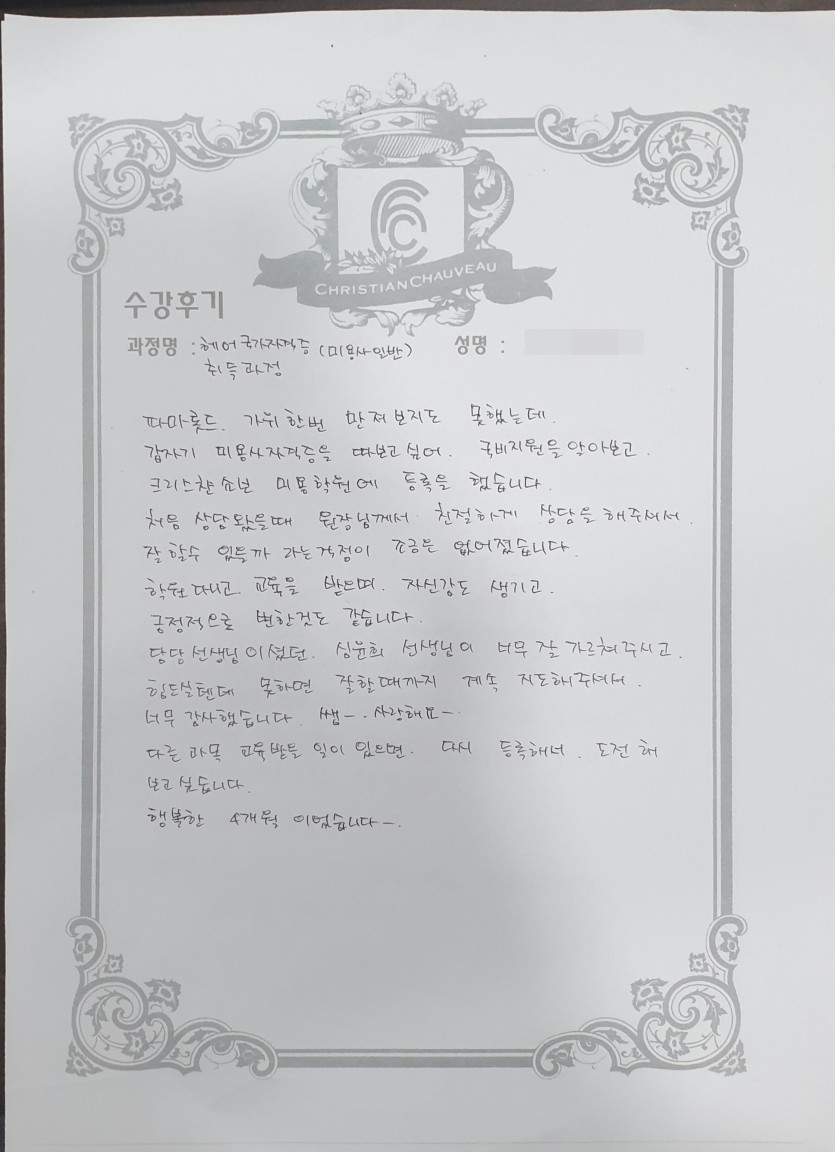 CHRISTIAN CHAUVEAU
수강후기
과정명 : 헤어국가자격증 (미용사일반) 성명 :
취득과정
파마롯드. 가위한번 만져보지도 못했는데.
갑자기 미용사자격증을 따보고 싶어. 국비지원을 알아보고.
크리스챤쇼보 미용학원에 등록을 했습니다.
처음 상담왔을때 원장님께서 친절하게 상담을 해주셔서.
잘할수 있을까 라는걱정이 조금은 없어졌습니다.
학원다니고 교육을 받으며. 자신감도 생기고.
긍정적으로 변한것도 같습니다.
담당선생님이셨던. 심윤희 선생님이 너무잘가르쳐주시고.
힘드실텐데 못하면 잘할때까지 계속 지도해주셔서.
너무감사했습니다. 쌤~. 사랑해요~
다른과목 교육받을 일이 있으면. 다시 등록해서. 도전해
보고싶습니다.
행복한 4개월 이었습니다~.